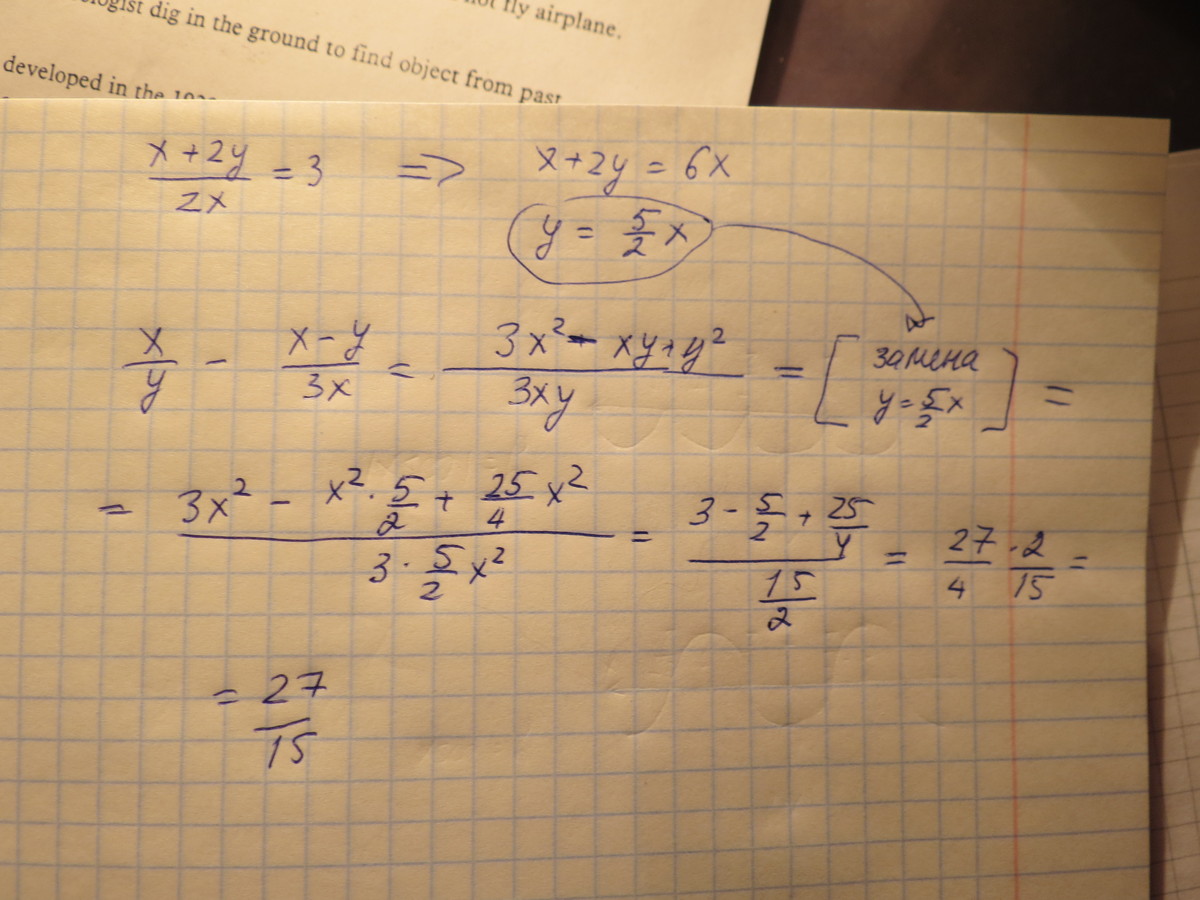 not fly airplane.
ologist dig in the ground to find object from past
developed in the 192
x + 2y / 2x = 3 => x + 2y = 6x
y = 5/2 x
x/y - x - y / 3x = 3x² - xy + y² / 3xy = [замена y = 5/2 x] =
= 3x² - x² · 5/2 + 25/4 x² / 3 · 5/2 x² = 3 - 5/2 + 25/4 / 15/2 = 27/4 · 2/15 =
= 27/15